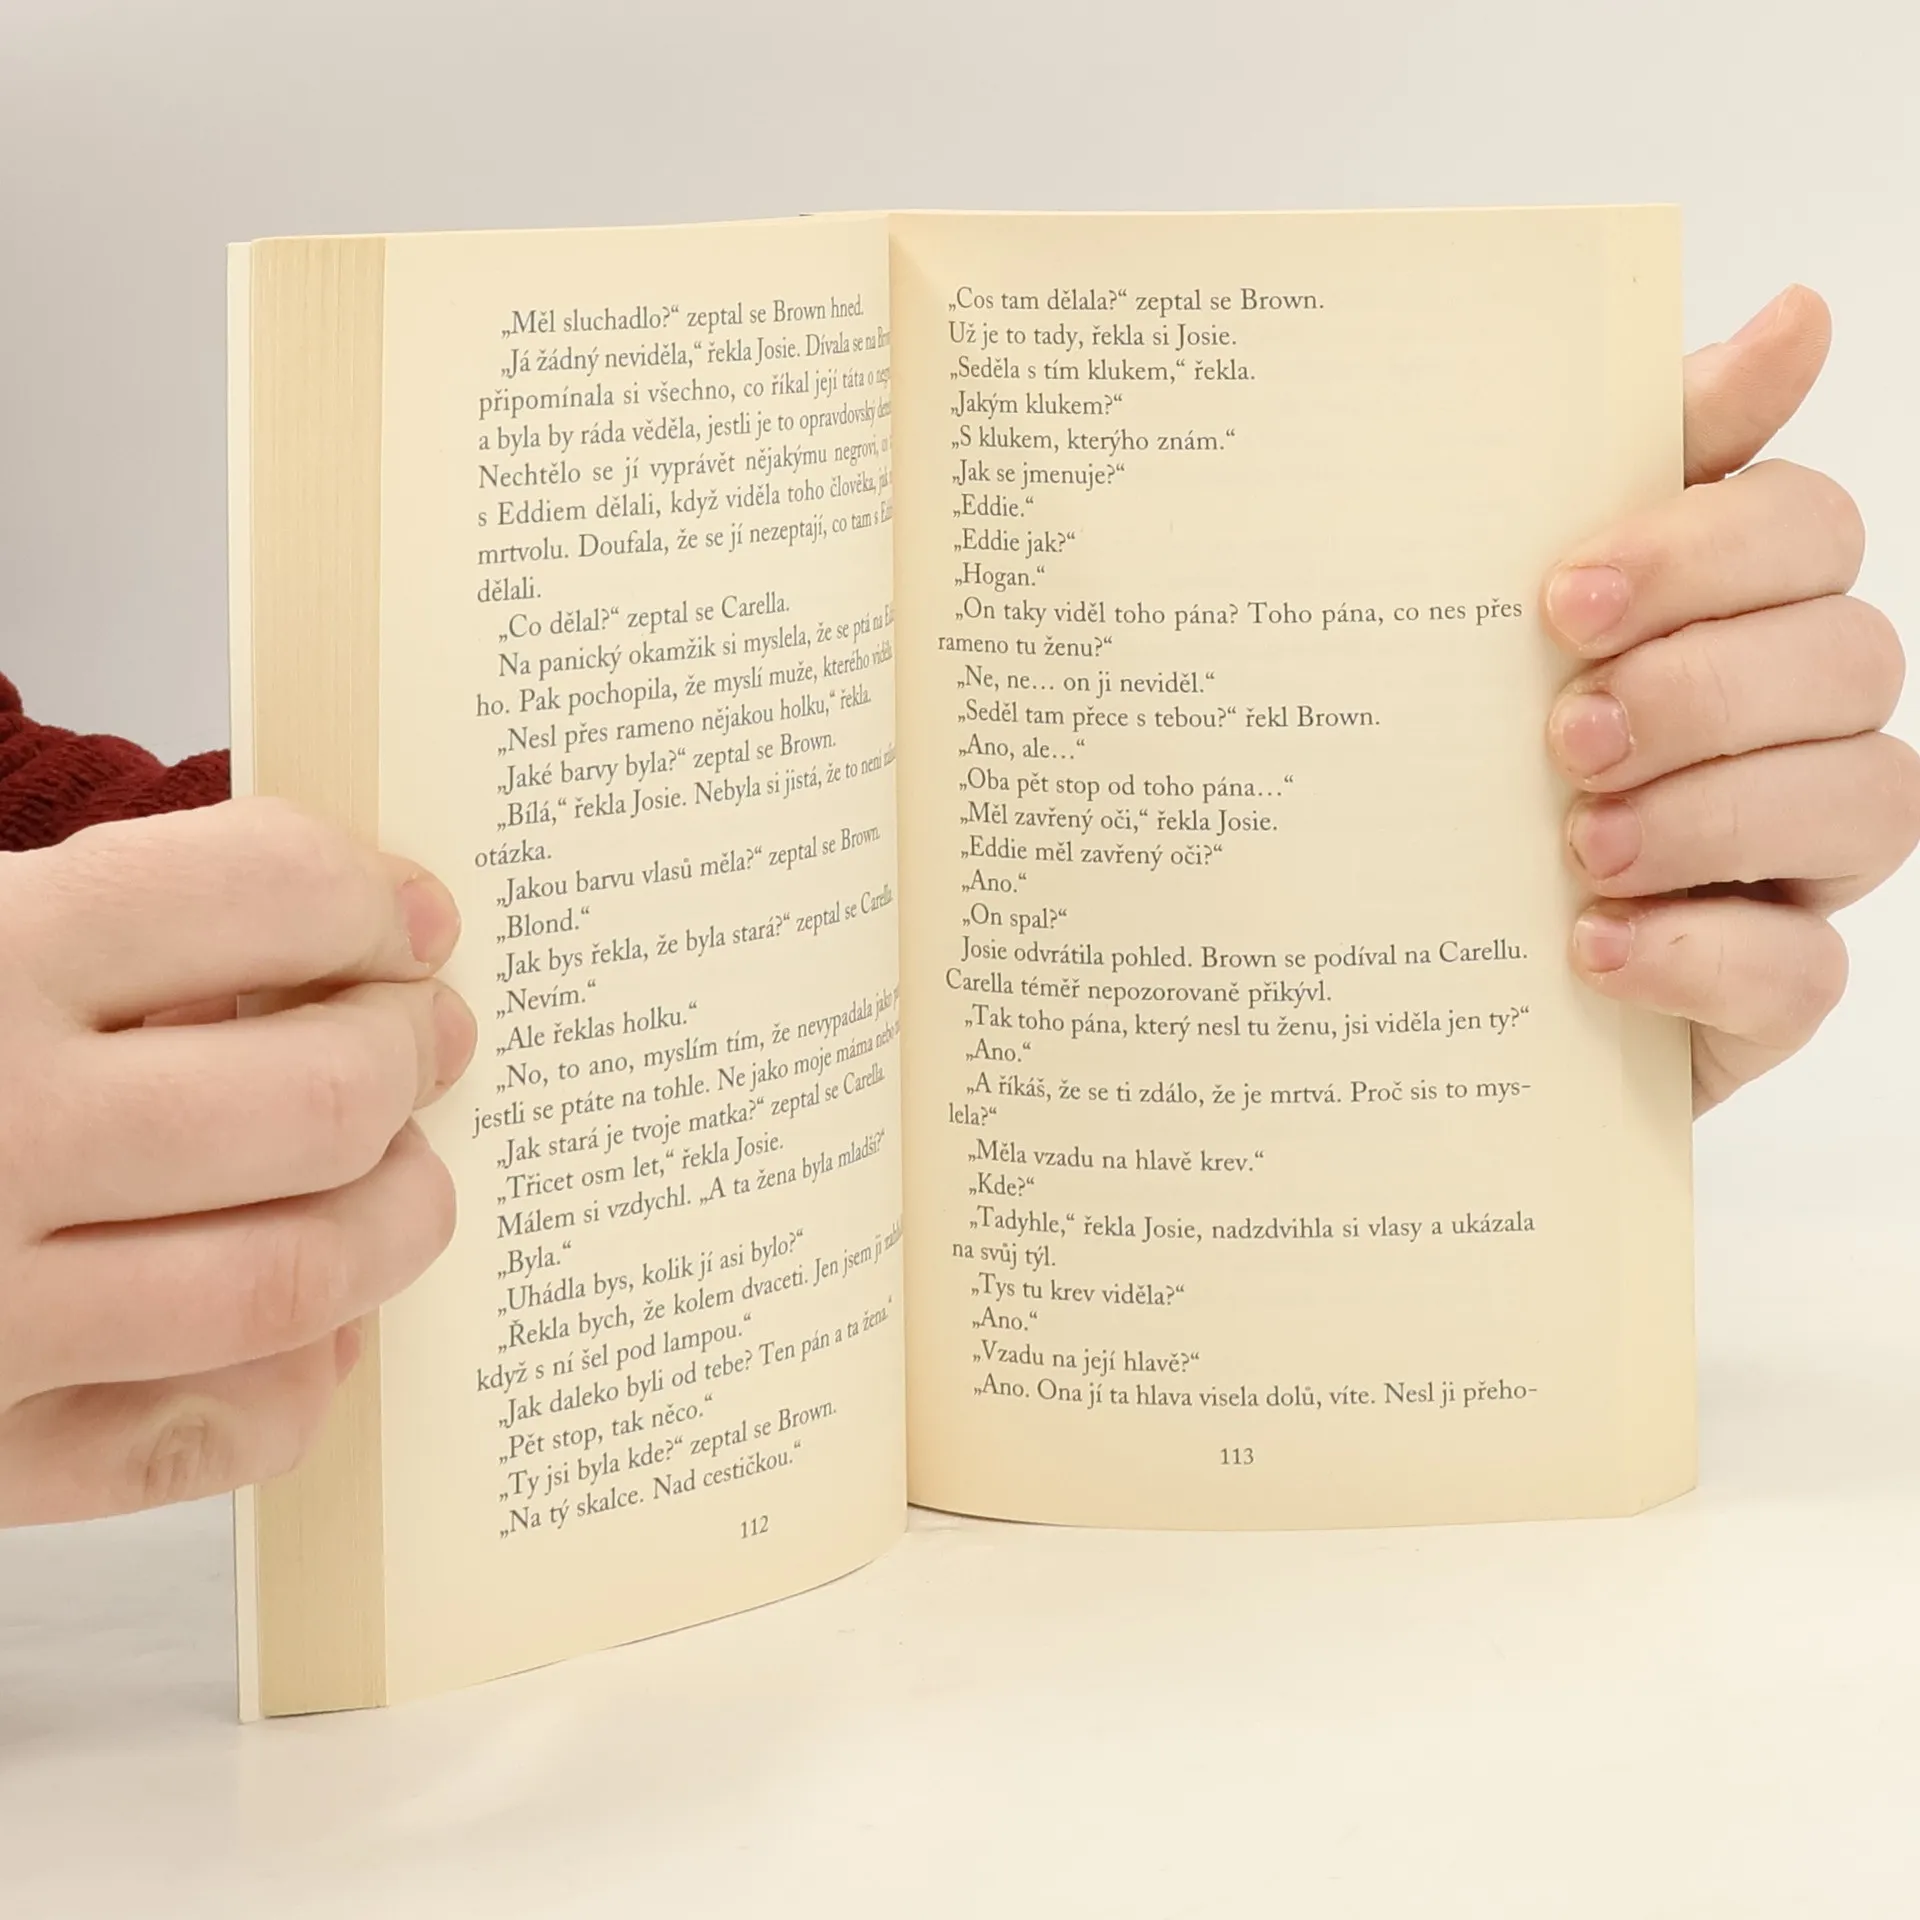 „Měl sluchadlo?“ zeptal se Brown hned.
„Já žádný neviděla,“ řekla Josie. Dívala se na
připomínala si všechno, co říkal její táta o
a byla by ráda věděla, jestli je to opravdovský
Nechtělo se jí vyprávět nějakému negrovi, co
s Eddiem dělali, když viděla toho člověka, jak
mrtvolu. Doufala, že se jí nezeptají, co tam s
dělali.
„Co dělal?“ zeptal se Carella.
Na panický okamžik si myslela, že se ptá na
ho. Pak pochopila, že myslí muže, kterého viděla.
„Nesl přes rameno nějakou holku,“ řekla.
„Jaké barvy byla?“ zeptal se Brown.
„Bílá,“ řekla Josie. Nebyla si jistá, že to není
otázka.
„Jakou barvu vlasů měla?“ zeptal se Brown.
„Blond.“
„Jak bys řekla, že byla stará?“ zeptal se Carella.
„Nevím.“
„Ale řeklas holku.“
„No, to ano, myslím tím, že nevypadala jako
jestli se ptáte na tohle. Ne jako moje máma nebo
„Jak stará je tvoje matka?“ zeptal se Carella.
„Třicet osm let,“ řekla Josie.
Málem si vzdychl. „A ta žena byla mladší?“
„Byla.“
„Uhádla bys, kolik jí asi bylo?“
„Řekla bych, že kolem dvaceti. Jen jsem ji
když s ní šel pod lampou.“
„Jak daleko byli od tebe? Ten pán a ta žena.“
„Pět stop, tak něco.“
„Ty jsi byla kde?“ zeptal se Brown.
„Na tý skalce. Nad cestičkou.“
112
„Cos tam dělala?“ zeptal se Brown.
Už je to tady, řekla si Josie.
„Seděla s tím klukem,“ řekla.
„Jakým klukem?“
„S klukem, kterýho znám.“
„Jak se jmenuje?“
„Eddie.“
„Eddie jak?“
„Hogan.“
„On taky viděl toho pána? Toho pána, co nes přes
rameno tu ženu?“
„Ne, ne… on ji neviděl.“
„Seděl tam přece s tebou?“ řekl Brown.
„Ano, ale…“
„Oba pět stop od toho pána…“
„Měl zavřený oči,“ řekla Josie.
„Eddie měl zavřený oči?“
„Ano.“
„On spal?“
Josie odvrátila pohled. Brown se podíval na Carellu.
Carella téměř nepozorovaně přikývl.
„Tak toho pána, který nesl tu ženu, jsi viděla jen ty?“
„Ano.“
„A říkáš, že se ti zdálo, že je mrtvá. Proč sis to mys-
lela?“
„Měla vzadu na hlavě krev.“
„Kde?“
„Tadyhle,“ řekla Josie, nadzdvihla si vlasy a ukázala
na svůj týl.
„Tys tu krev viděla?“
„Ano.“
„Vzadu na její hlavě?“
„Ano. Ona jí ta hlava visela dolů, víte. Nesl ji přeho-
113